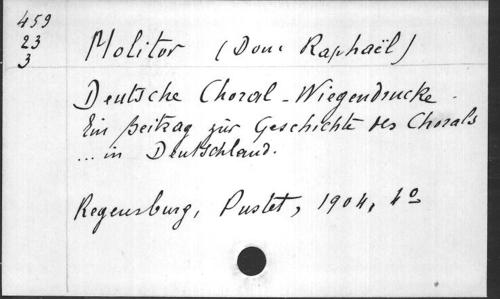 459
23
3
Molitor (Dom Raphaël)
Deutsche Choral-Wiegendrucke.
Ein Beitrag zur Geschichte des Chorals
... in Deutschland.
Regensburg, Pustet, 1904, 4º